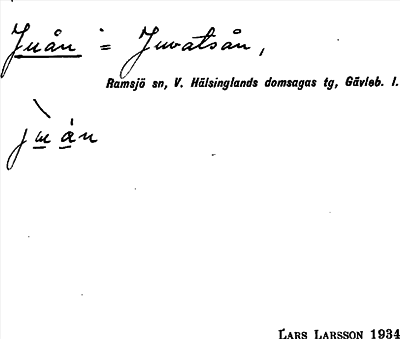 Juån = Juvatsån,
Ramsjö sn, V. Hälsinglands domsagas tg, Gävleb. l.
LARS LARSSON 1934